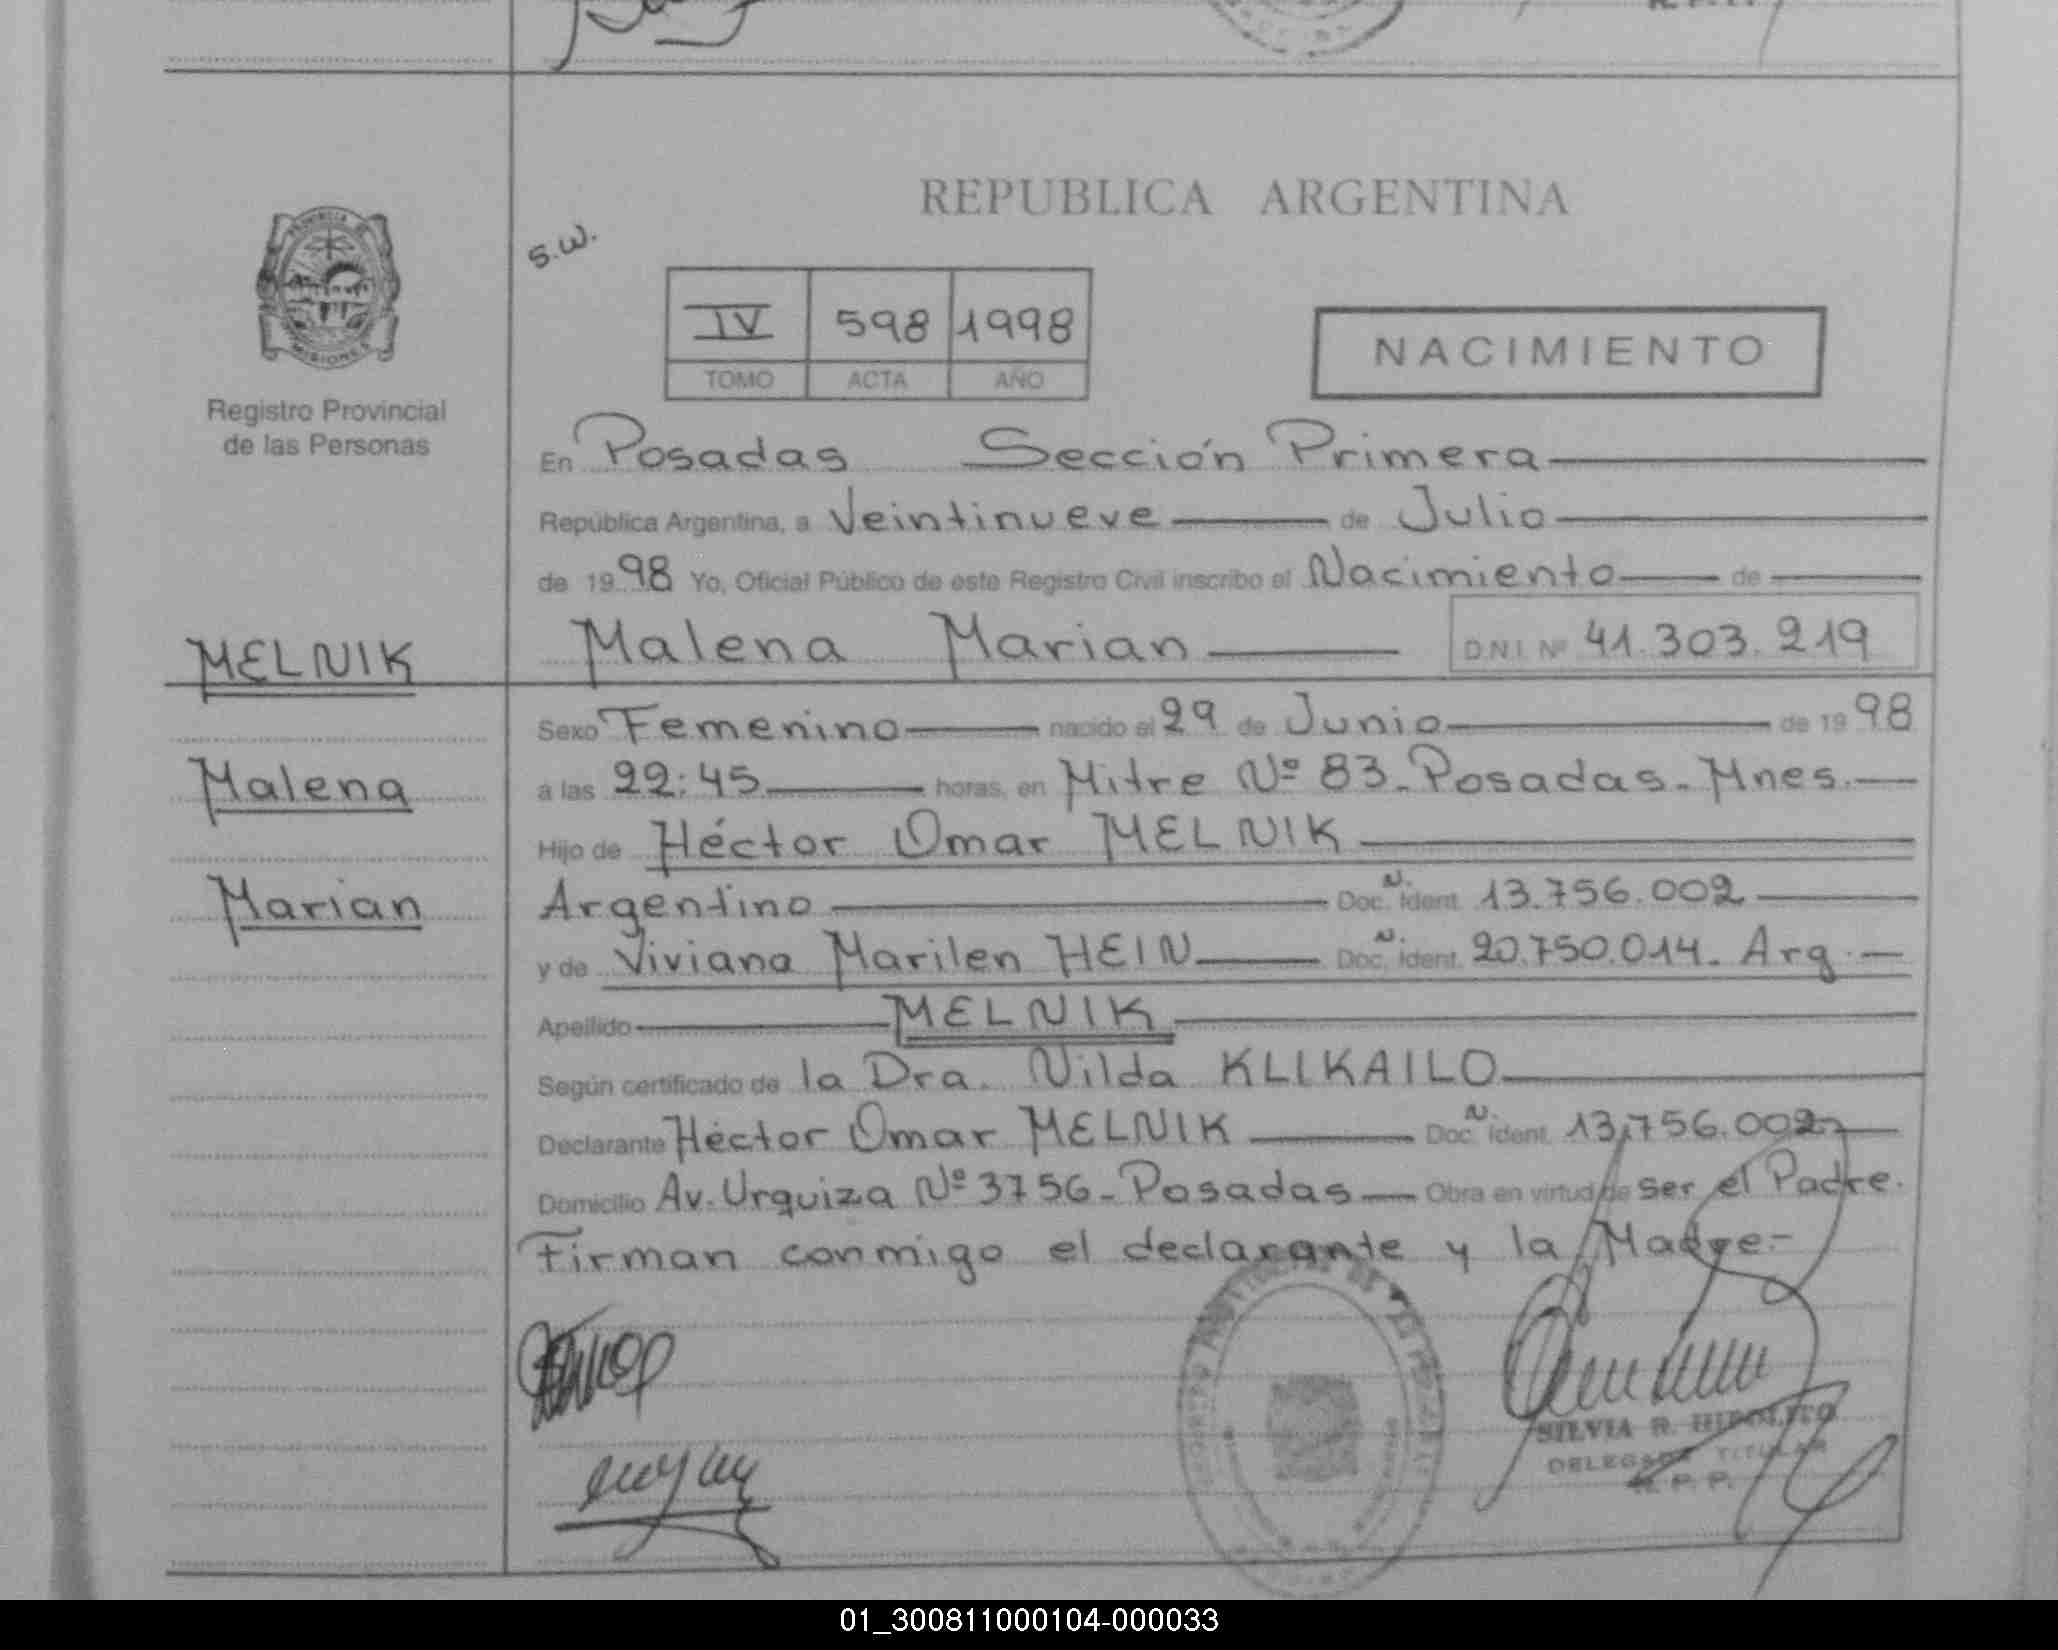 REPUBLICA ARGENTINA
S.W.
MISIONES
IV 598 1998
TOMO ACTA AÑO
NACIMIENTO
Registro Provincial
de las Personas
En Posadas Sección Primera
República Argentina, a Veintinueve de Julio
de 1998 Yo, Oficial Público de este Registro Civil inscribo el Nacimiento de
MELNIK
Malena Marian D.N.I. Nº 41.303.219
Sexo Femenino nacido el 29 de Junio de 1998
Malena
a las 22:45 horas, en Mitre Nº 83_Posadas_Mnes.
Hijo de Héctor Omar MELNIK
Marian
Argentino Doc. N. Ident. 13.756.002
y de Viviana Marilen HEIN Doc. N. Ident. 20.750.014_ Arg.
Apellido MELNIK
Según certificado de la Dra. Nilda KLIKAILO
Declarante Héctor Omar MELNIK Doc. N. Ident. 13.756.002
Domicilio Av. Urquiza Nº 3756_Posadas Obra en virtud de ser el Padre.
Firman conmigo el declarante y la Madre.-
SILVIA R. HIPOLITO
DELEGADA TITULAR
R. P. P.
01_300811000104-000033